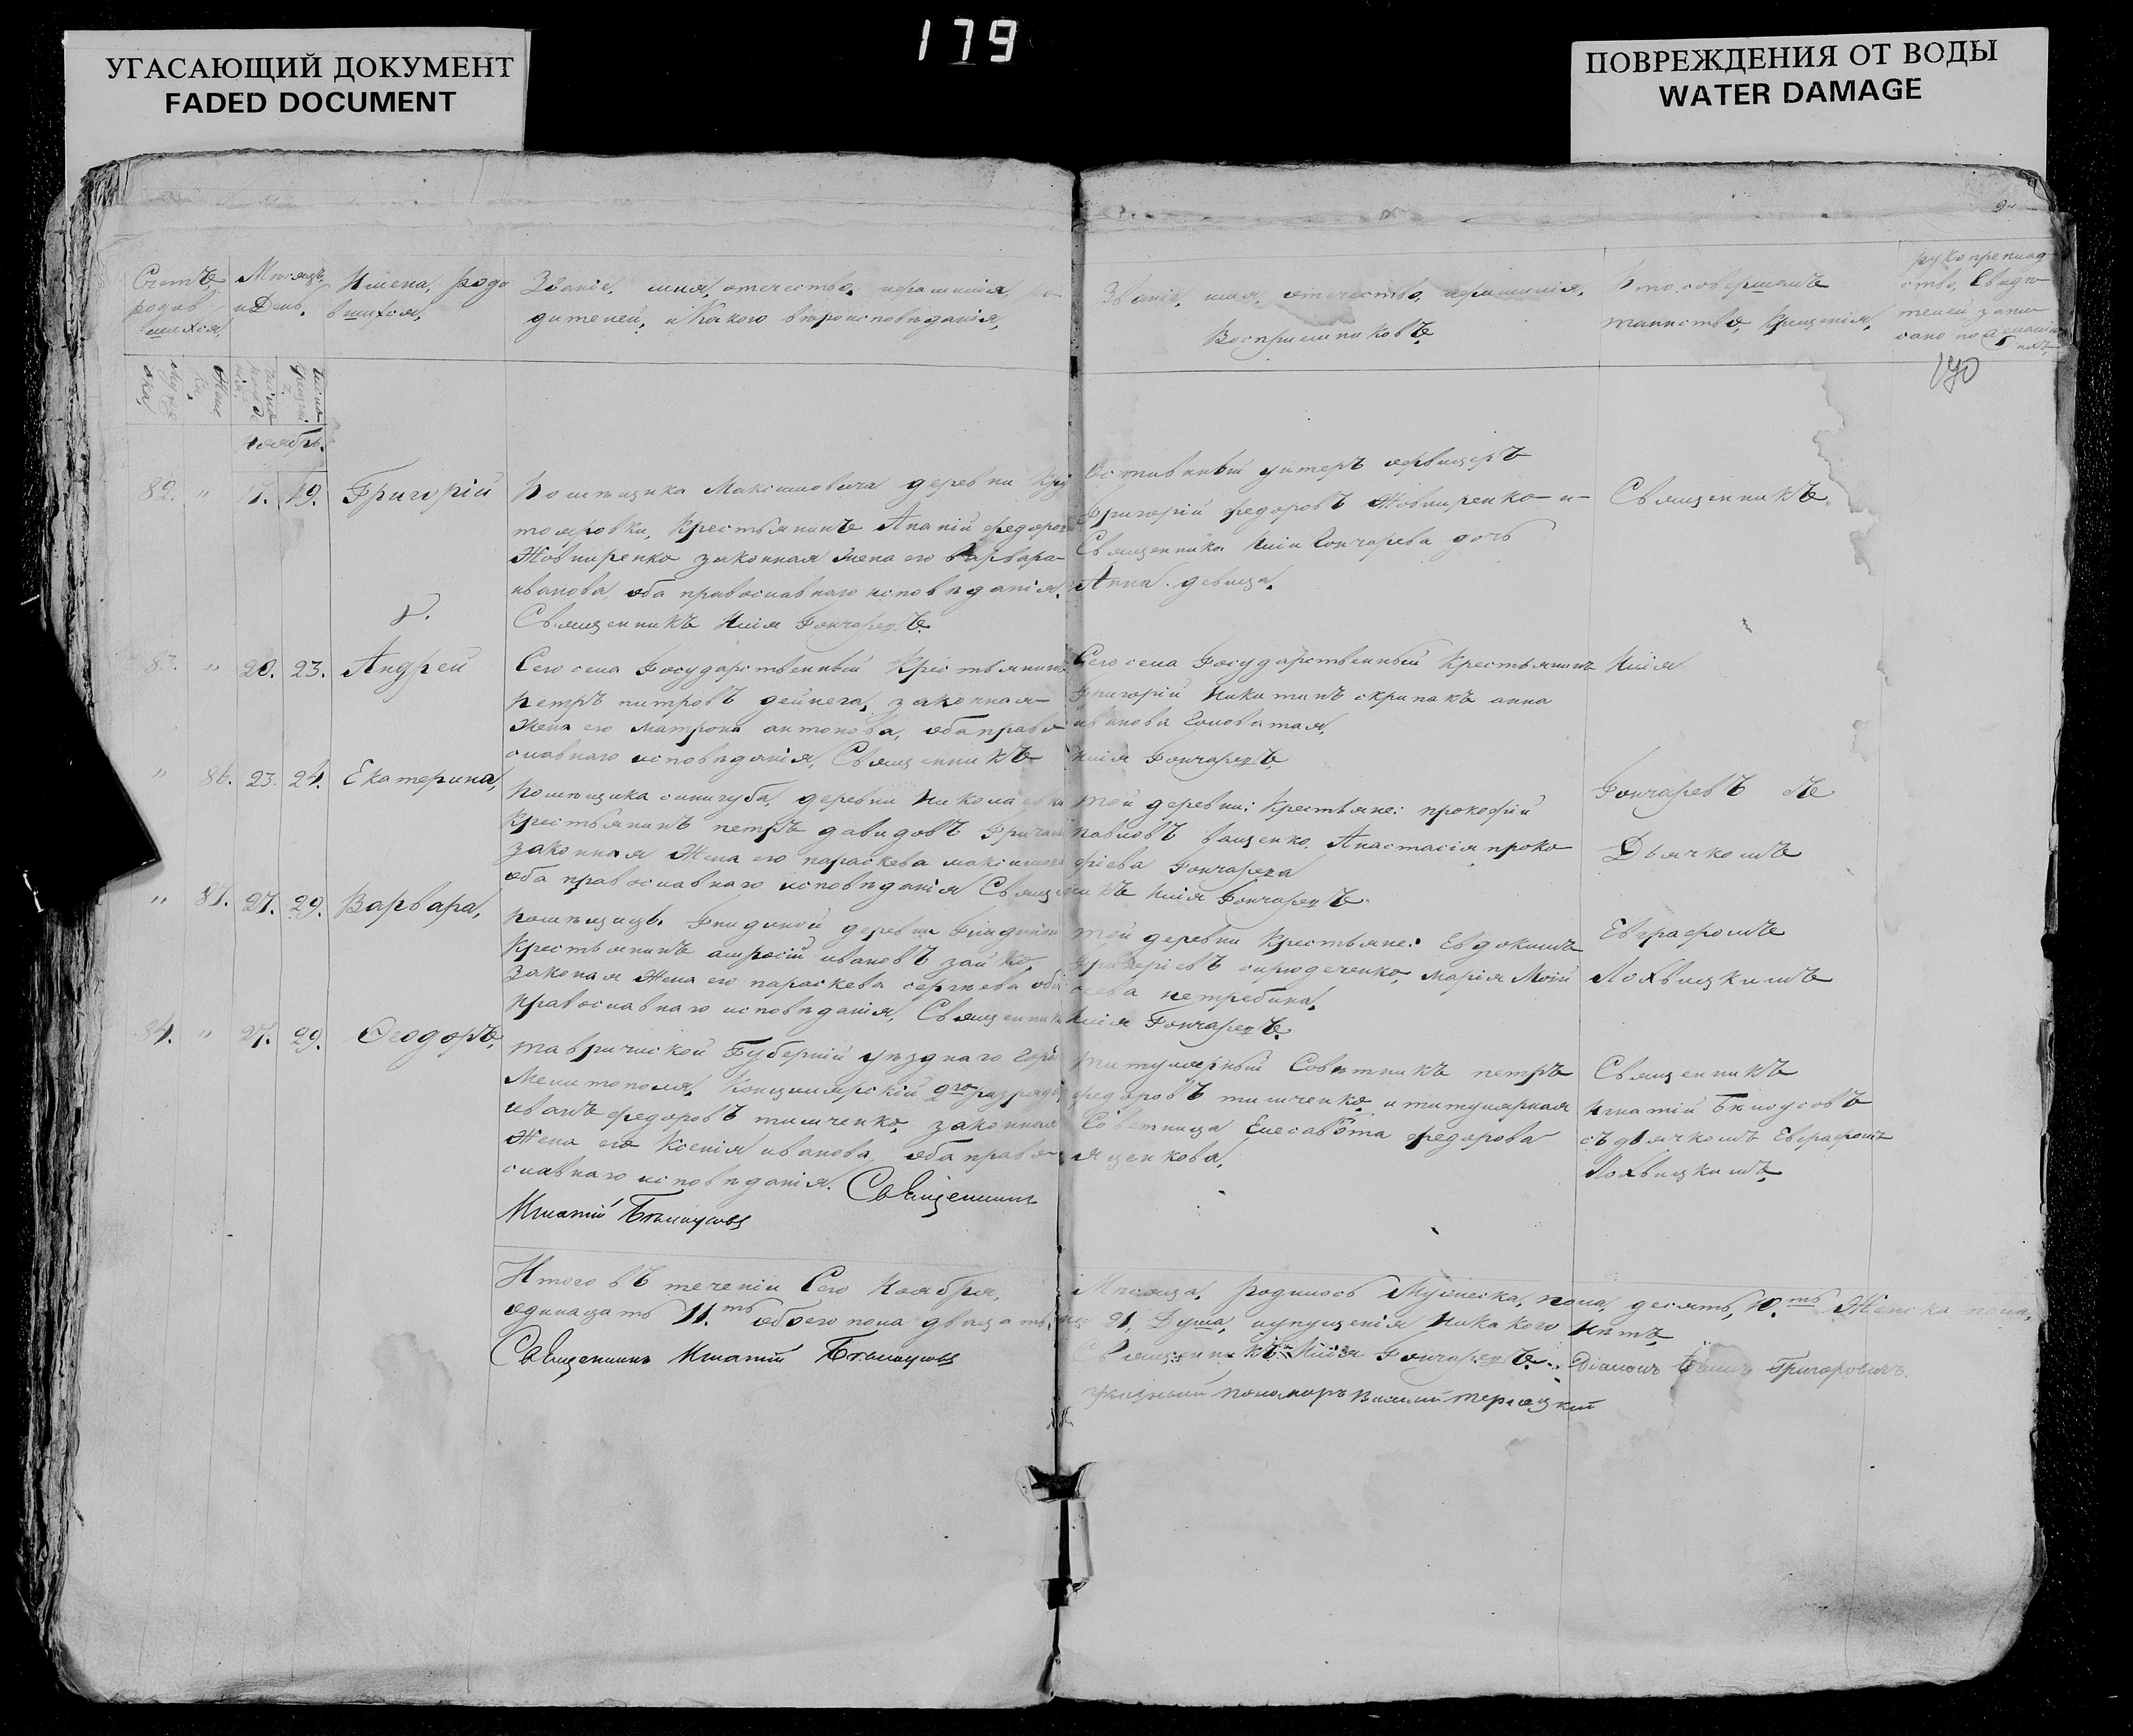 179
УГАСАЮЩИЙ ДОКУМЕНТ
FADED DOCUMENT
ПОВРЕЖДЕНИЯ ОТ ВОДЫ
WATER DAMAGE
Счетъ родившихся,
Месяцъ, и День,
Имена, родившихся,
Званіе, имя, отечество, родителей, и Какого вѣроисповѣданія,
Званіе, имя, отечество,
Воспріемниковъ,
Кто совершалъ
таинство, Крещенія,
190
Ноябрь.
82. " 17. 19. Григорій
Помѣщика Максимовича деревни
Крестьянинъ Ананій федоровъ
Жовниренко законная жена его варвара
иванова, оба православнаго исповѣданія.
Священникъ Илія Гончаревъ.
Отставный унтеръ офицеръ
Григорій федоровъ Жовниренко и
Священника Иліи Гончарева дочь
Анна девица.
Священникъ
83. " 20. 23. Андрей
Сего села Государственный Крестьянинъ
петръ питровъ дейнега, законная
жена его матрона антонова, оба право
славнаго исповѣданія, Священникъ
Сего села Государственный Крестьянинъ
Григорій Никитинъ скрипакъ анна
иванова Головатая,
Илія Гончаревъ,
Илія
" 86. 23. 24. Екатерина,
Помѣщика синигуба, деревни Николаевки
Крестьянинъ петръ давидовъ
законная Жена его параскева максимова
оба православнаго исповѣданія Священ
той деревни: Крестьяне: прокофій
павловъ ващенко, Анастасія проко
фіева Гончарева
никъ Илія Гончаревъ.
Гончаревъ
Дьячкомъ
" 87. 27. 29. Варвара,
помѣщицы Гнидиной деревни Гнидиной
Крестьянинъ амросій ивановъ зайко,
законая Жена его параскева сергѣева оба
православнаго исповѣданія, Священникъ
той деревни Крестьяне: Евдокимъ
марія Мой
сеева нетребина,
Илія Гончаревъ.
Евграфомъ
Лохвицкимъ
84. " 27. 29. Феодоръ,
таврической Губерніи уѣзднаго Города
Мелитополя, Концелярскій 2го разряда
иванъ федоровъ тимченко, законная
Жена его Ксенія иванова, оба право
славнаго исповѣданія. Священникъ
Игнатій Бѣлоусовъ
титулярный Советникъ петръ
федоровъ тимченко, и титулярная
Советница Елесавѣта федорова
яценкова,
Священникъ
игнатій Бѣлоусовъ
съ дьячкомъ Евграфомъ
Лохвицкимъ
Итого въ теченіи Сего Ноября,
одинацать 11.ть обоего пола двацать
Священникъ Игнатій Бѣлоусовъ
Мѣсяца, родилось Мужеска, пола, десять, 10.ть Женска пола,
21, Душа, упущенія Никакого Нѣтъ,
Священникъ Илія Гончаревъ. Діаконъ Григоровичъ.
пономаръ Василий